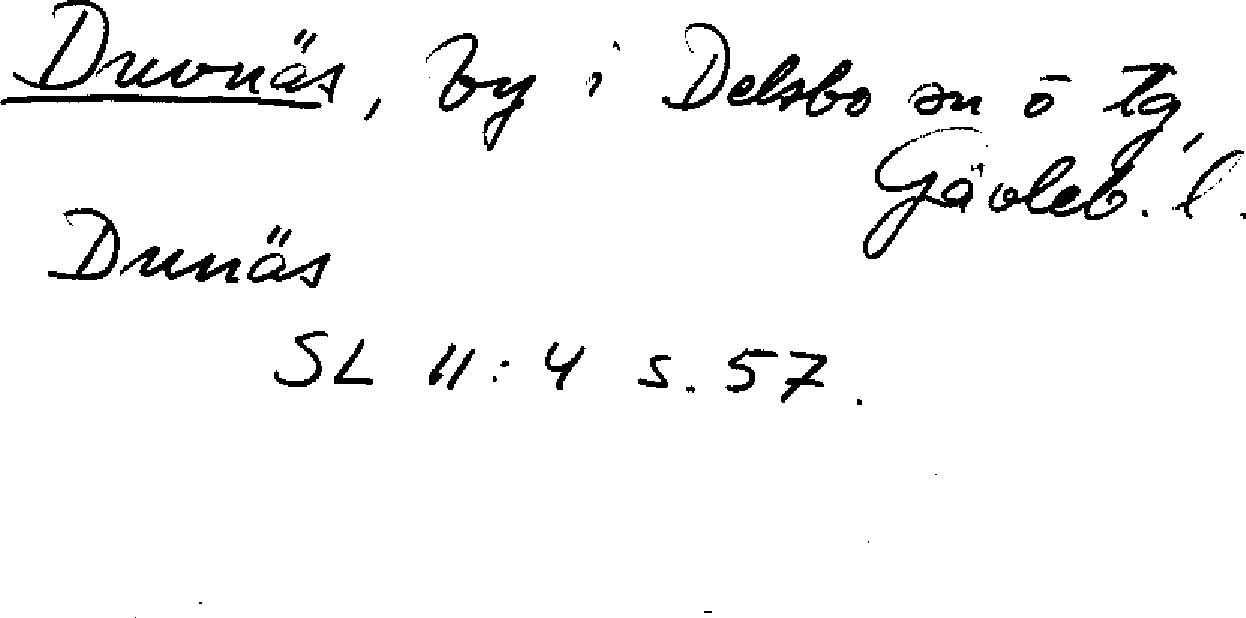 Druvnäs, by i Delsbo sn o tg,
Gävleb. l.
Drunäs
SL 11:4 s. 57.